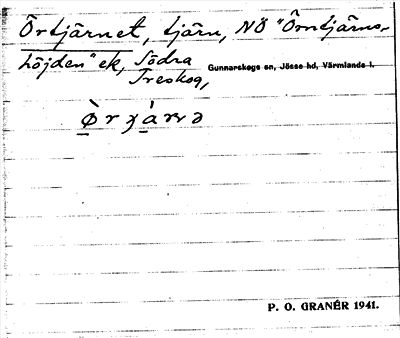 Örtjärnet, tjärn, NÖ "Örntjärns-
höjden" ek, Södra
Treskog, Gunnarskogs sn, Jösse hd, Värmlands l.
P. O. GRANÉR 1941.